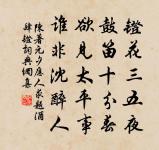 鐙花三五夜
鼓笛十分春
欲見太平事
誰非沈醉人
陳著元夕庶人求題酒
肆鐙詞典網集